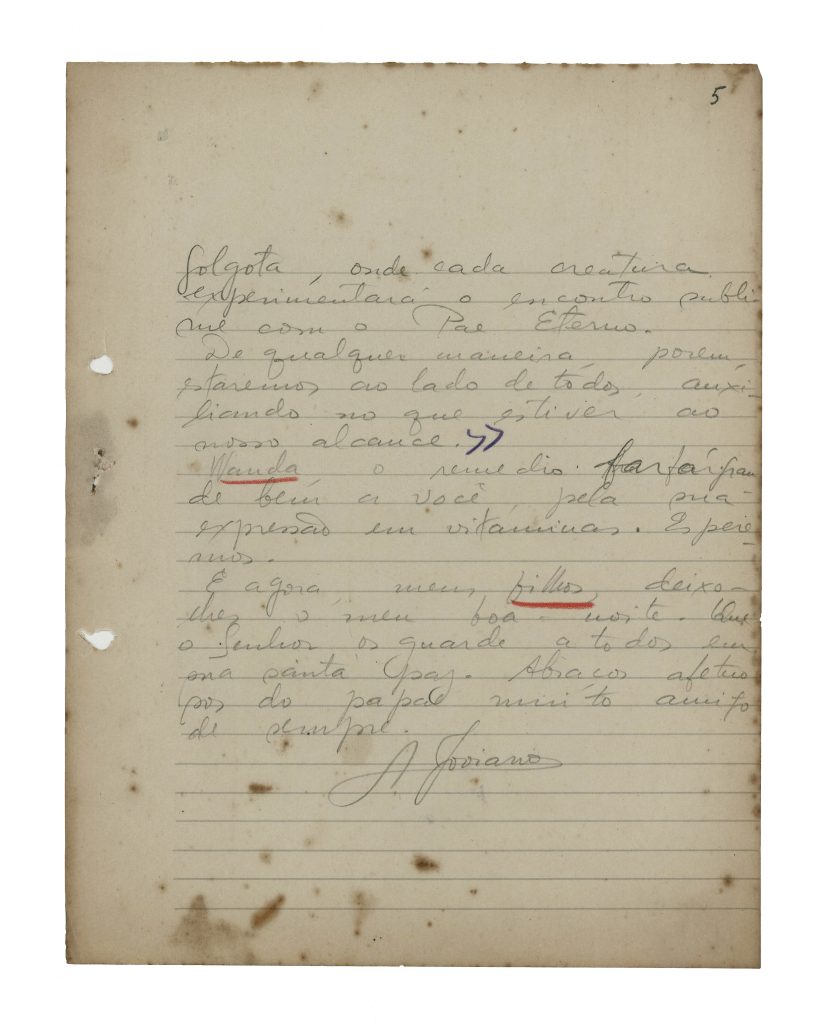 5
Golgota, onde cada creatura
experimentará o encontro subli-
me com o Pae Eterno.
De qualquer maneira, porém,
estaremos ao lado de todos, auxi-
liando no que estiver ao
nosso alcance. »
Wanda o remedio fará gran
de bem a você pela sua
expressão em vitaminas. Espere-
mos.
E agora meus filhos, deixo-
lhes o meu boa-noite. Que
o Senhor os guarde a todos em
sua santa paz. Abraços afetuo
sos do papae muito amigo
de sempre.
A. Joviano